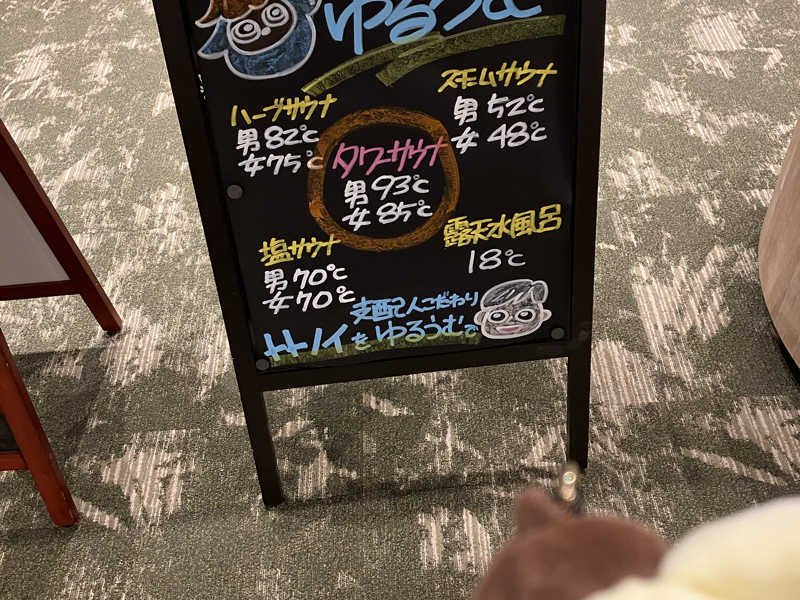 ゆるうむ
スチームサウナ
男 52℃
女 48℃
ハーブサウナ
男 82℃
女 75℃
タワーサウナ
男 93℃
女 85℃
露天水風呂
18℃
塩サウナ
男 70℃
女 70℃
支配人こだわり
サ ノイを ゆるうむで